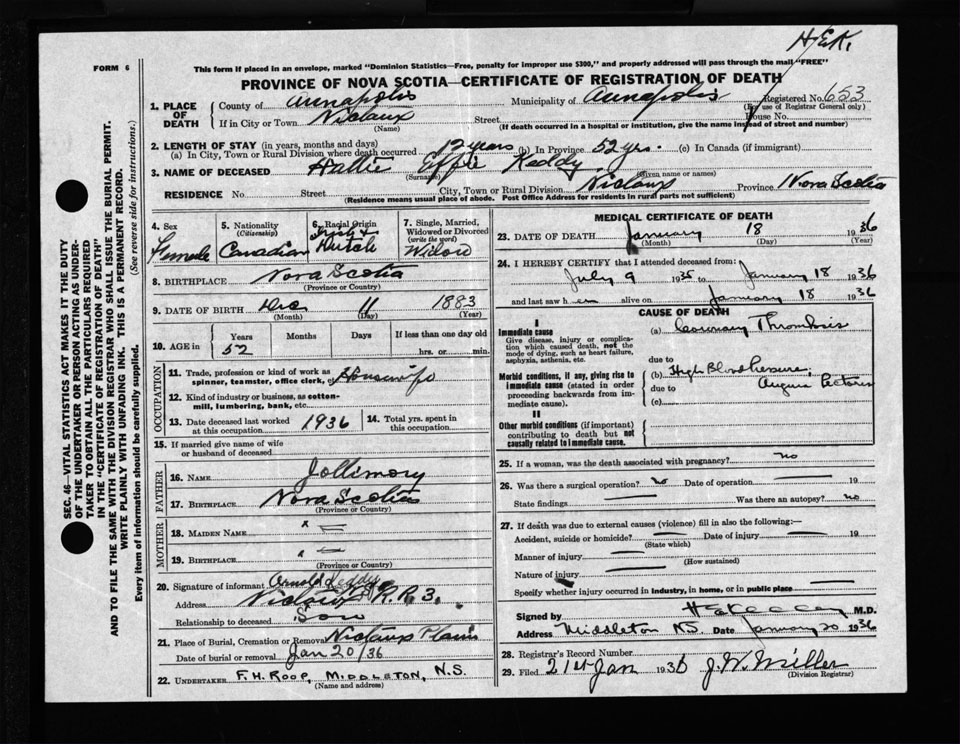 H.E.K.
FORM 6
This form if placed in an envelope, marked "Dominion Statistics—Free, penalty for improper use $300," and properly addressed will pass through the mail "FREE"
PROVINCE OF NOVA SCOTIA—CERTIFICATE OF REGISTRATION OF DEATH
SEC. 46—VITAL STATISTICS ACT MAKES IT THE DUTY
OF THE UNDERTAKER OR PERSON ACTING AS UNDER-
TAKER TO OBTAIN ALL THE PARTICULARS REQUIRED
IN THE "CERTIFICATE OF REGISTRATION OF DEATH"
AND TO FILE THE SAME WITH THE DIVISION REGISTRAR WHO SHALL ISSUE THE BURIAL PERMIT.
WRITE PLAINLY WITH UNFADING INK. THIS IS A PERMANENT RECORD.
Every item of information should be carefully supplied. (See reverse side for instructions.)
1. PLACE OF DEATH County of Annapolis Municipality of Annapolis Registered No. 653
(For use of Registrar General only)
If in City or Town Nictaux Street House No.
(Name) (If death occurred in a hospital or institution, give the name instead of street and number)
2. LENGTH OF STAY (in years, months and days)
(a) In City, Town or Rural Division where death occurred 12 years (b) In Province 52 yrs. (c) In Canada (if immigrant)
3. NAME OF DECEASED Hallie Effie Keddy
(Surname) (Given name or names)
RESIDENCE No. Street City, Town or Rural Division Nictaux Province Nova Scotia
(Residence means usual place of abode. Post Office Address for residents in rural parts not sufficient)
4. Sex Female
5. Nationality (Citizenship) Canadian
6. Racial Origin Irish & Dutch
7. Single, Married, Widowed or Divorced (write the word) Widow
8. BIRTHPLACE Nova Scotia
(Province or Country)
9. DATE OF BIRTH Dec 1883
(Month) (Day) (Year)
10. AGE in Years Months Days If less than one day old
52 hrs. or min.
OCCUPATION
11. Trade, profession or kind of work as spinner, teamster, office clerk, etc. Housewife
12. Kind of industry or business, as cotton-mill, lumbering, bank, etc.
13. Date deceased last worked at this occupation 1936
14. Total yrs. spent in this occupation
15. If married give name of wife or husband of deceased
FATHER
16. NAME Jollimory
17. BIRTHPLACE Nova Scotia
(Province or Country)
MOTHER
18. MAIDEN NAME x —
19. BIRTHPLACE —
(Province or Country)
20. Signature of informant Arnold Keddy
Address Nictaux R.R.3.
Relationship to deceased Son
21. Place of Burial, Cremation or Removal Nictaux Plains
Date of burial or removal Jan 20/36
22. UNDERTAKER F.H. ROOP, MIDDLETON, N.S.
(Name and address)
MEDICAL CERTIFICATE OF DEATH
23. DATE OF DEATH January 18 1936
(Month) (Day) (Year)
24. I HEREBY CERTIFY that I attended deceased from:
July 9 1935 to January 18 1936
and last saw her alive on January 18 1936
CAUSE OF DEATH
I
Immediate cause
Give disease, injury or complication which caused death, not the mode of dying, such as heart failure, asphyxia, asthenia, etc.
(a) Coronary Thrombosis
due to
Morbid conditions, if any, giving rise to immediate cause (stated in order proceeding backwards from immediate cause).
(b) High Blood Pressure;
due to Angina Pectoris
(c)
II
Other morbid conditions (if important) contributing to death but not causally related to immediate cause.
25. If a woman, was the death associated with pregnancy? no
26. Was there a surgical operation? No Date of operation — 19
State findings — Was there an autopsy? no
27. If death was due to external causes (violence) fill in also the following:—
Accident, suicide or homicide? — Date of injury — 19
(State which)
Manner of injury —
(How sustained)
Nature of injury —
Specify whether injury occurred in industry, in home, or in public place —
Signed by M.D.
Address Middleton N.S. Date January 20 1936
28. Registrar's Record Number
29. Filed 21st Jan 1936 J. W. Miller
(Division Registrar)